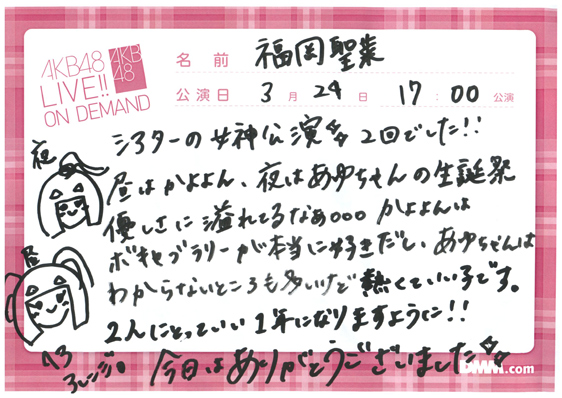 AKB48
LIVE!!
ON DEMAND
AKB
48
名前 福岡聖菜
公演日 3月24日 17:00公演
シアターの女神公演 2回でした!!
夜
昼はかよよん、夜はあゆちゃんの生誕祭
優しさに溢れてるなぁ。。。かよよんは
ボキャブラリーが本当に好きだし、あゆちゃんは
昼
わからないところも多いけど熱くていい子です。
2人にとっていい1年になりますように!!
ヘアアレンジ。
今日はありがとうございました
DMM.com